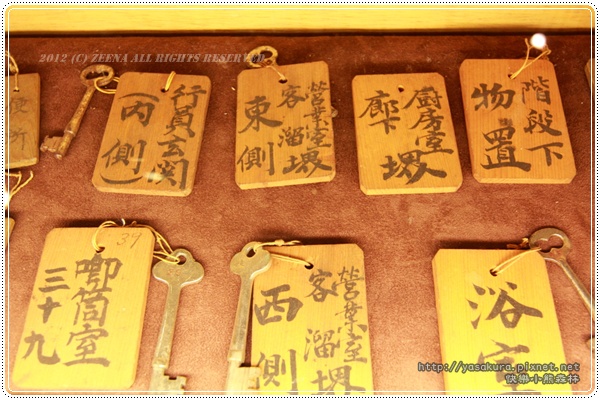 2012 (C) ZEENA ALL RIGHTS RESERVED
便所
行員玄関
(内側)
營業室
客溜堺
東側
厨房室
廊下堺
階段下
物置
39
喞筒室
三十九
營業室
客溜堺
西側
浴室
http://yasakura.pixnet.net
快樂小熊森林